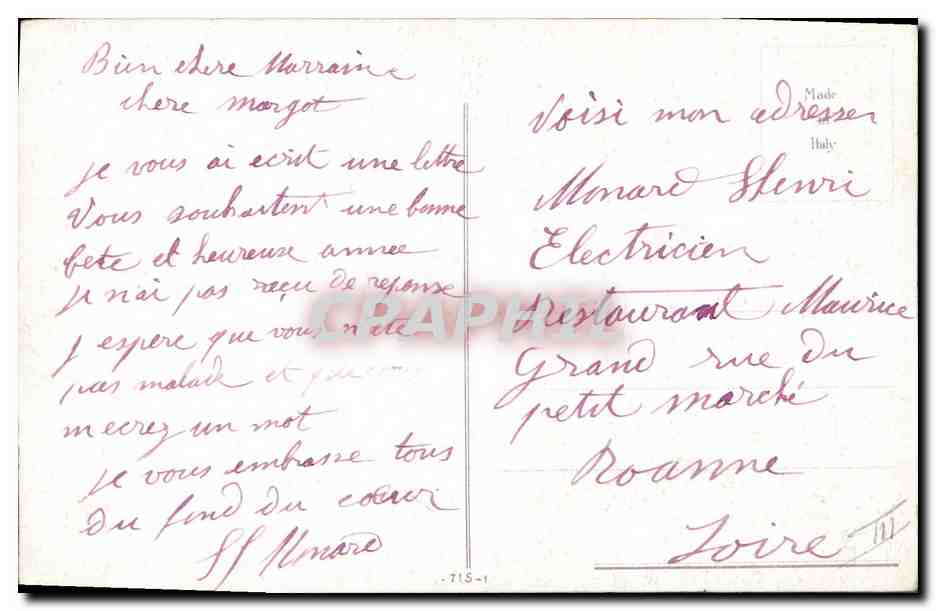 Bien chere Marraine
chere Margot
je vous ai ecrit une lettre
Vous souhaitent une bonne
fete et heureuse annee
je n'ai pas reçu de reponse
j espere que vous n'ete
pas malade et que
m ecrez un mot
je vous embrasse tous
du fond du coeur
H Monard
Voisi mon adresse
Monard Henri
Electricien
Restaurant Maurice
Grand rue du
petit marché
Roanne
Loire
III
Made
in
Italy
CRAPHIL
- 71S-1